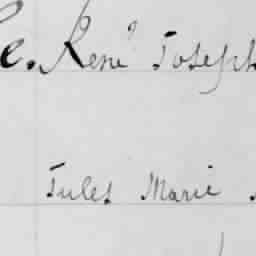 e. René Joseph
Jules Marie